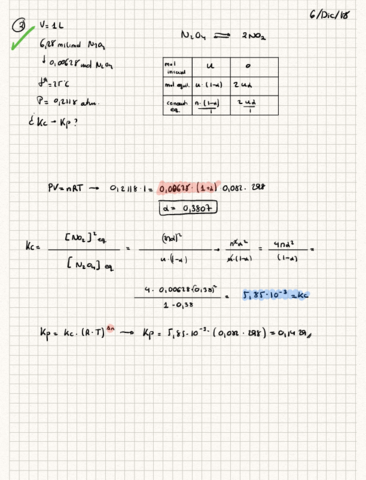 6/Dic/18
③ V = 1L
N₂O₄ ⇌ 2NO₂
6,28 milimol N₂O₄
↓ 0,00628 mol N₂O₄
Tª = 25°C
P = 0,2118 atm.
¿ Kc - Kp ?
mol inicial n 0
mol equil. n·(1-α) 2nα
concentr eq. n·(1-α)/1 2nα/1
PV = nRT → 0,2118·1 = 0,00628·(1+α)·0,082·298
α = 0,3807
Kc = [NO₂]² eq / [N₂O₄] eq = (2nα)² / n·(1-α) → 4n²α² / n·(1-α) = 4nα² / (1-α) =
4·0,00628·(0,38)² / 1-0,38 = 5,85·10⁻³ = Kc
Kp = Kc·(R·T)^Δn → Kp = 5,85·10⁻³·(0,082·298) = 0,1429,,